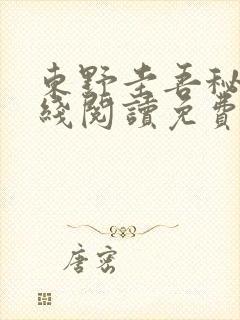 東野圭吾秘
綫閱讀免費
唐密